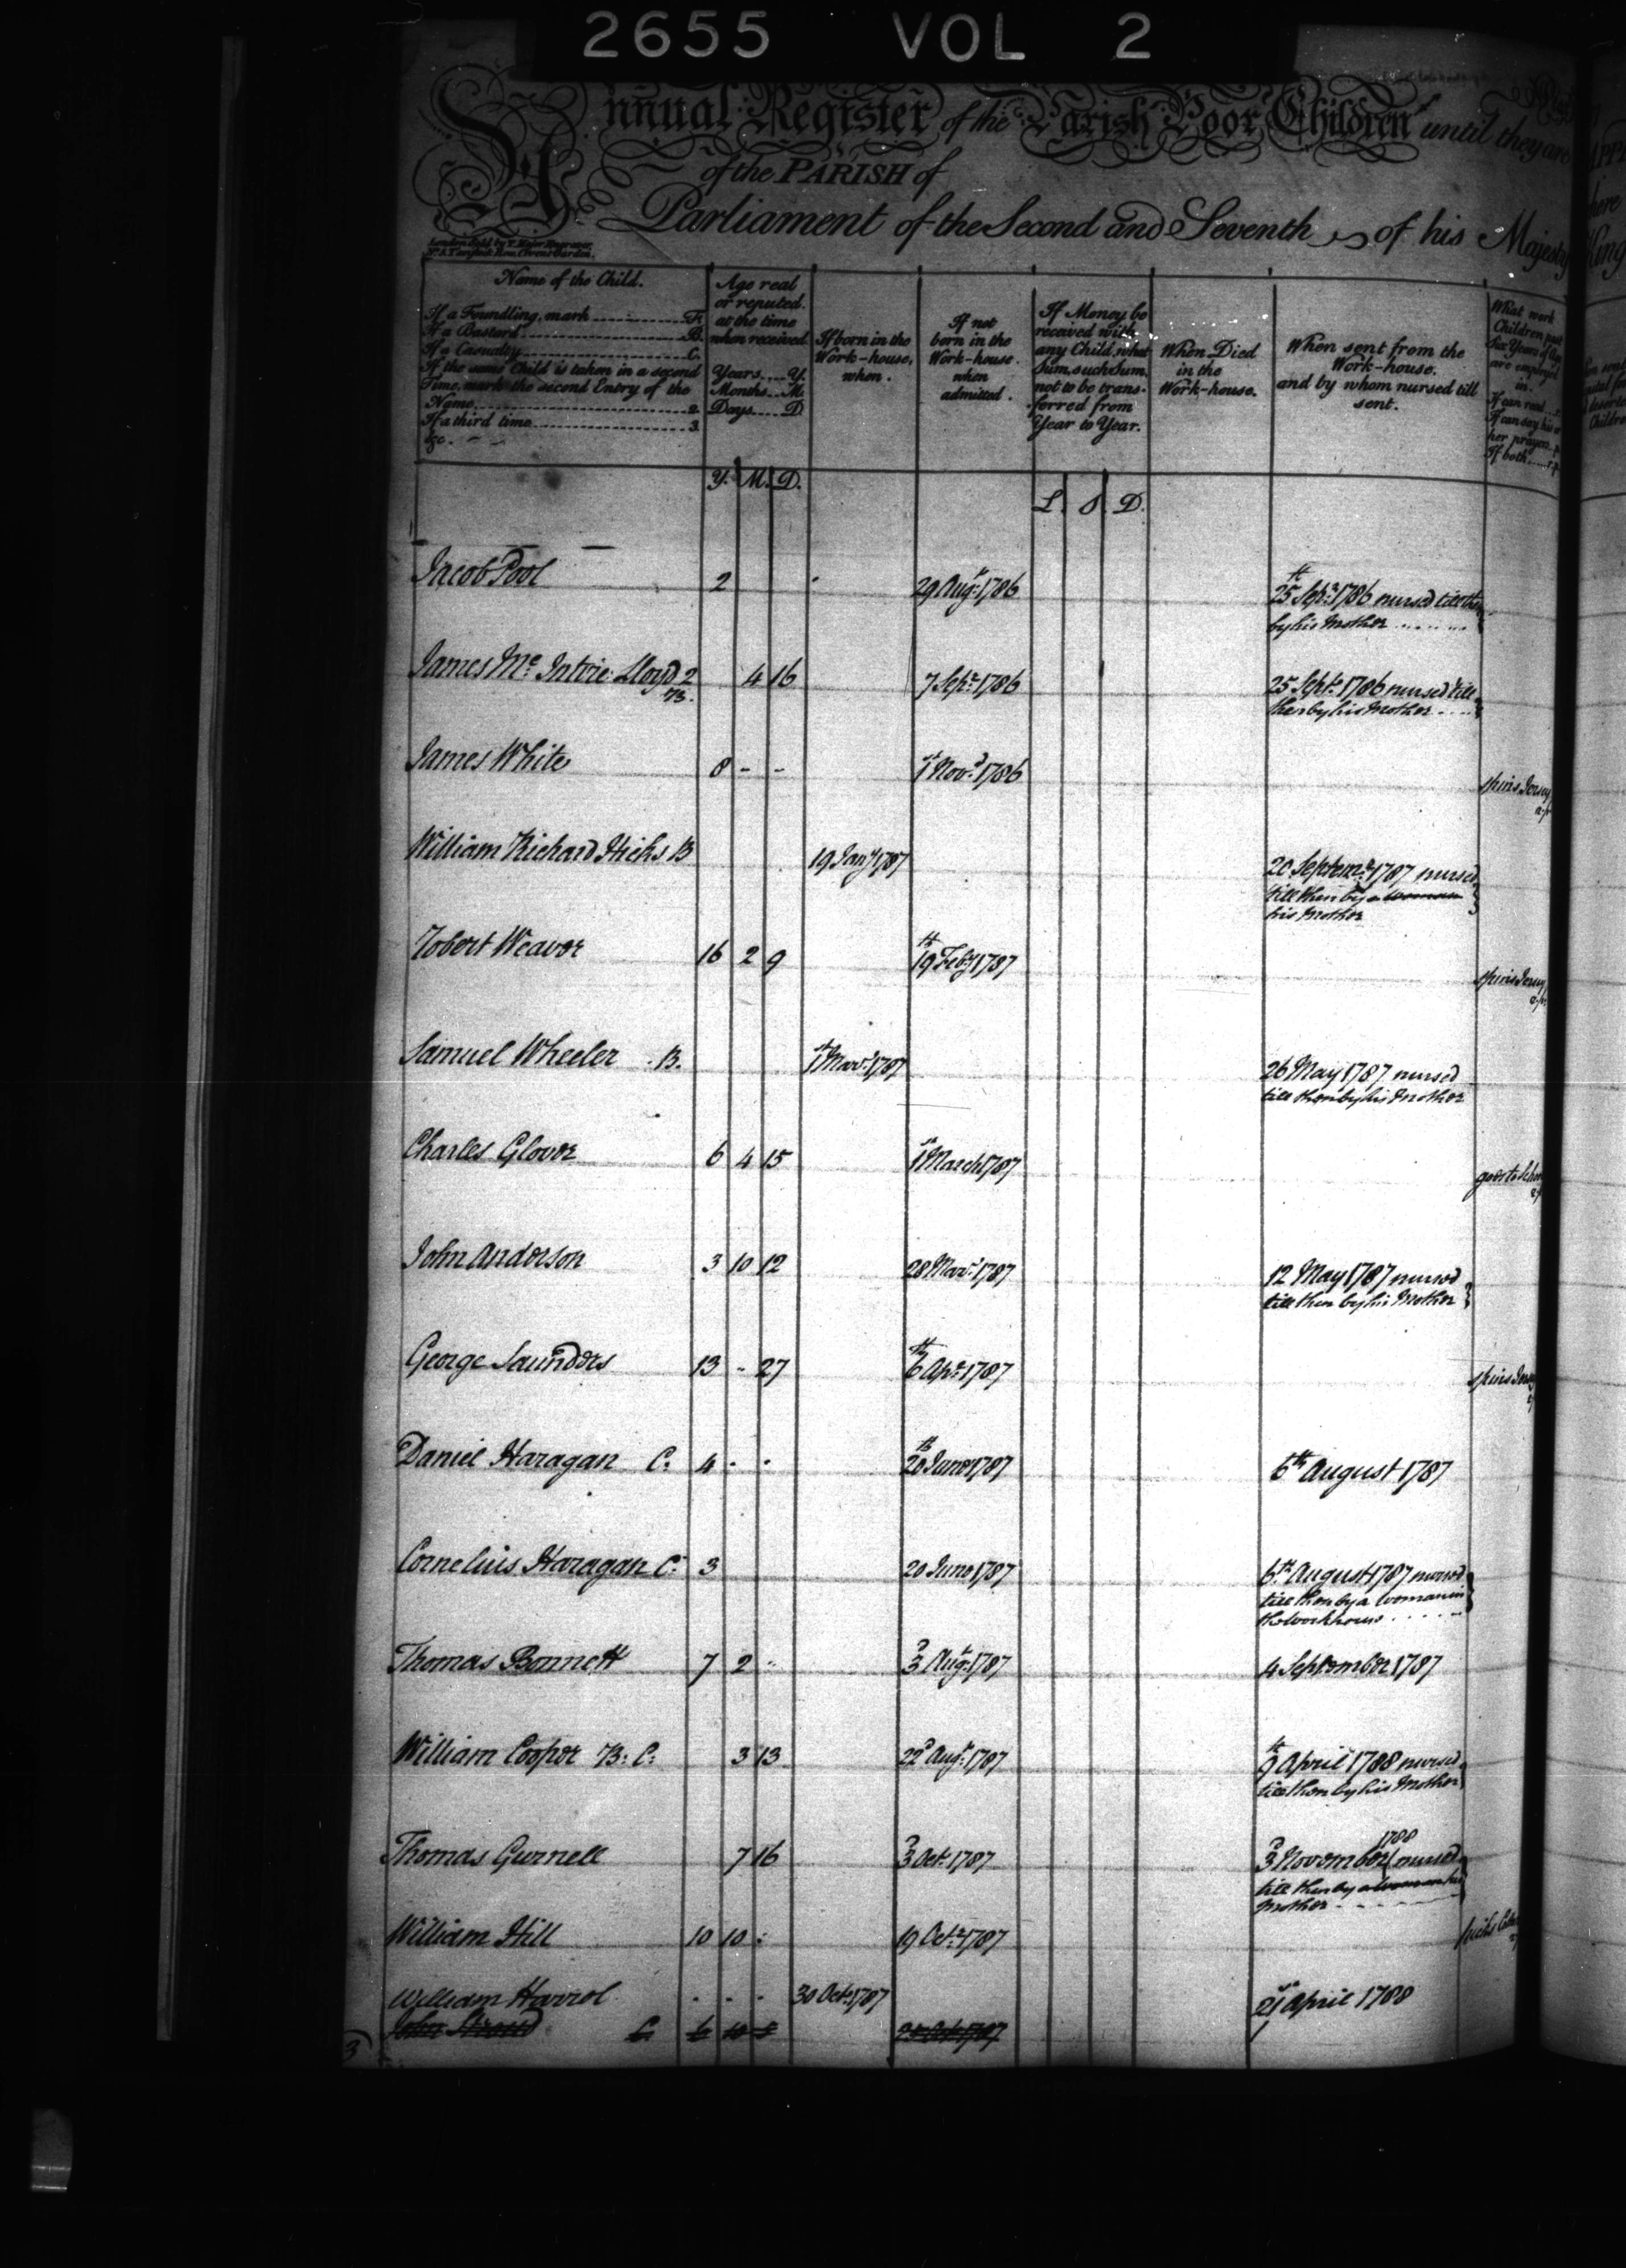 2655 VOL 2
Annual Register of the Parish Poor Children until they are
of the PARISH of
Parliament of the Second and Seventh of his Majesty
Name of the Child.
If a Foundling, mark F.
If a Bastard B.
If a Casualty C.
If the same Child is taken in a second
Time, mark the second Entry of the
Name 2.
If a third time 3.
&c.
Age real
or reputed
at the time
when received
Years Y.
Months M.
Days D.
If born in the
Work-house,
when.
If not
born in the
Work-house.
when
admitted.
If Money be
received with
any Child, what
Sum, such Sum,
not to be trans-
ferred from
Year to Year.
When Died
in the
Work-house.
When sent from the
Work-house.
and by whom nursed till
sent.
What work
Children past
Six Years of Age
are employed
in.
If can read r.
If can say his or
her prayers p.
If both r.p.
Y. M. D.
L. S D.
Jacob Pool 2 29 Augt. 1786 25th Sepr. 1786 nursed till then
by his Mother
James Mc. Intire Lloyd 2 4 16 7 Sepr. 1786 25 Sept. 1786 nursed till
B. then by his Mother
James White 8 - - 1st Novr. 1786 spins Jersey
William Richard Hicks B 19 Jany 1787 20 Septemr. 1787 nursed
till then by a woman
his Mother
Robert Weaver 16 2 9 19th Feby 1787 spins Jersey
Samuel Wheeler B. 1st Mar. 1787 26 May 1787 nursed
till then by his Mother
Charles Glover 6 4 15 1st March 1787 goes to School
John Anderson 3 10 12 28 Mar. 1787 12 May 1787 nursed
till then by his Mother
George Saunders 13 - 27 6th Apr. 1787 spins Jersey
Daniel Haragan C. 4 - - 20th June 1787 6th August 1787
Cornelius Haragan C. 3 20 June 1787 6th. August 1787 nursed
till then by a Woman in
the Workhouse
Thomas Bennett 7 2 3d Augt. 1787 4 September 1787
William Cooper B. C. 3 13 22d Augt. 1787 9th April 1788 nursed
till then by his Mother
1788
Thomas Gurnell 7 16 3d Oct. 1787 3d November nursed
till then by a woman his
Mother
William Hill 10 10 19 Octr. 1787
William Harrol - - - 30 Oct. 1787 21st April 1788
John Stroud C